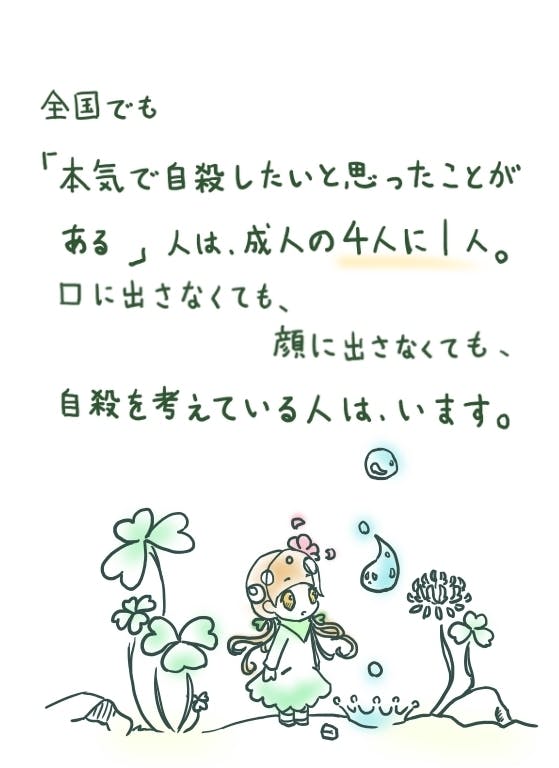 全国でも
「本気で自殺したいと思ったことが
ある」人は、成人の4人に1人。
口に出さなくても、
顔に出さなくても、
自殺を考えている人は、います。